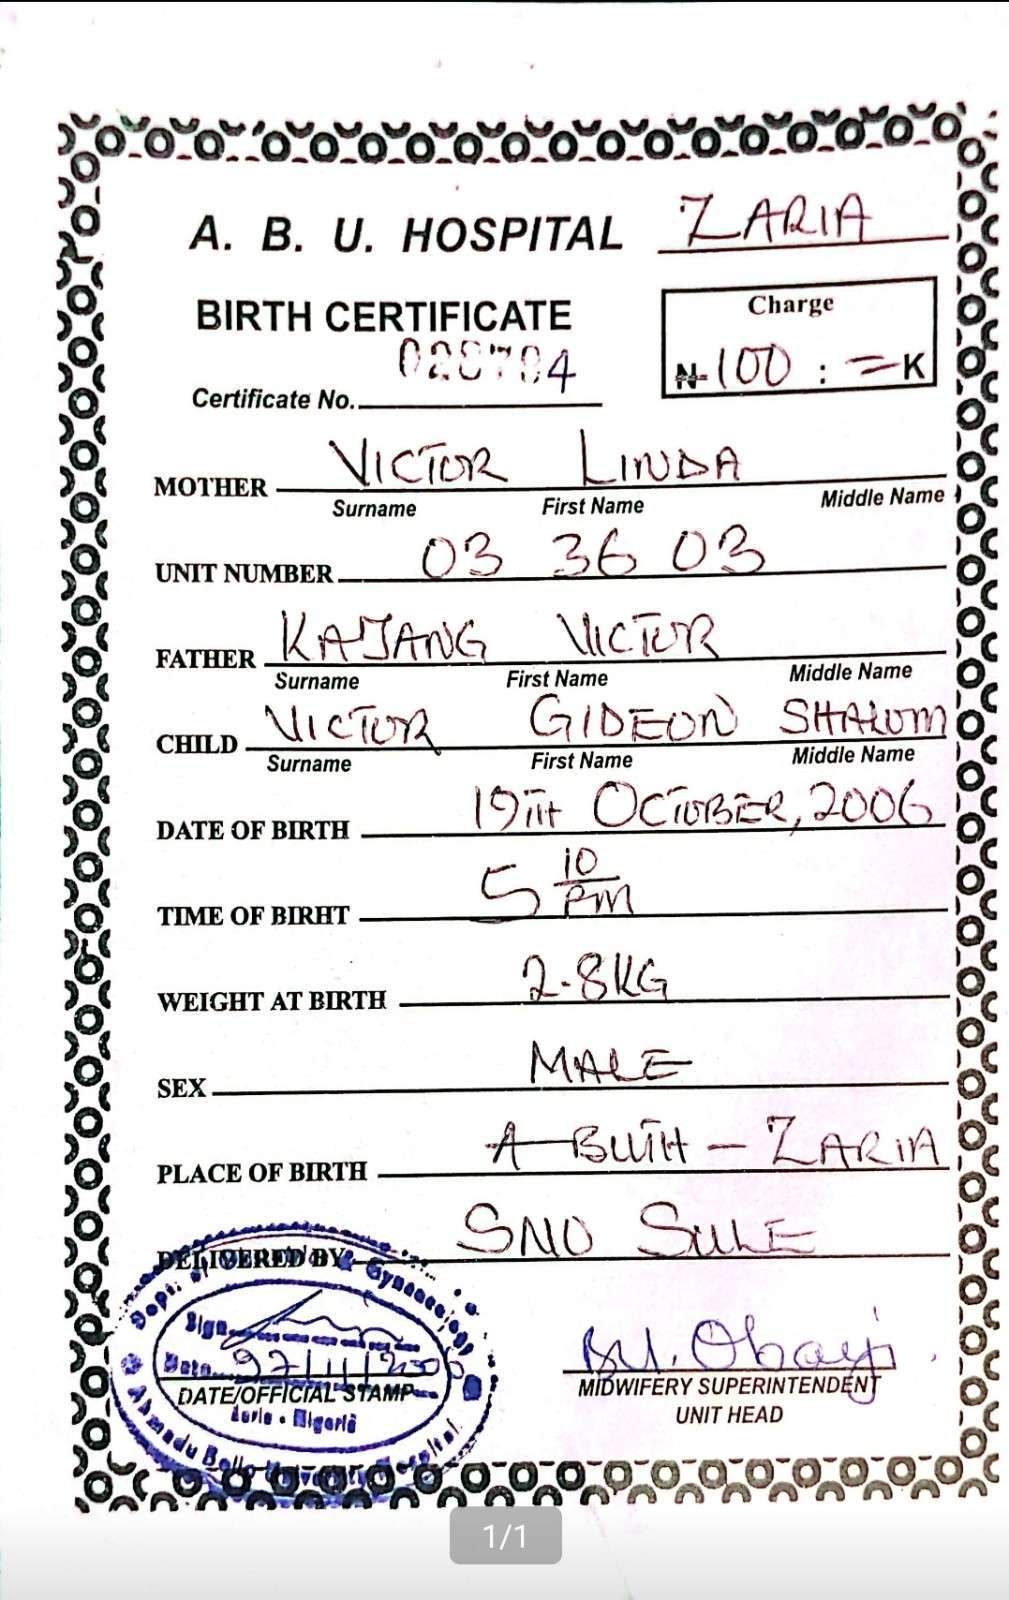 A. B. U. HOSPITAL ZARIA
BIRTH CERTIFICATE
Charge
₦ 100 : = K
Certificate No.
VICTOR LINDA
MOTHER
Surname First Name Middle Name
UNIT NUMBER 03 36 03
FATHER KAJANG VICTOR
Surname First Name Middle Name
CHILD VICTOR GIDEON SHALOM
Surname First Name Middle Name
DATE OF BIRTH 19TH OCTOBER, 2006
TIME OF BIRHT 5 10 PM
WEIGHT AT BIRTH 2.8KG
SEX MALE
PLACE OF BIRTH ABUTH - ZARIA
DELIVERED BY SNO SULE
Dept. of & Gynaecology
Sign
Date 27/11/2006
DATE/OFFICIAL STAMP
Zaria - Nigeria
Ahmadu Bello University Hospital
MIDWIFERY SUPERINTENDENT
UNIT HEAD
1/1